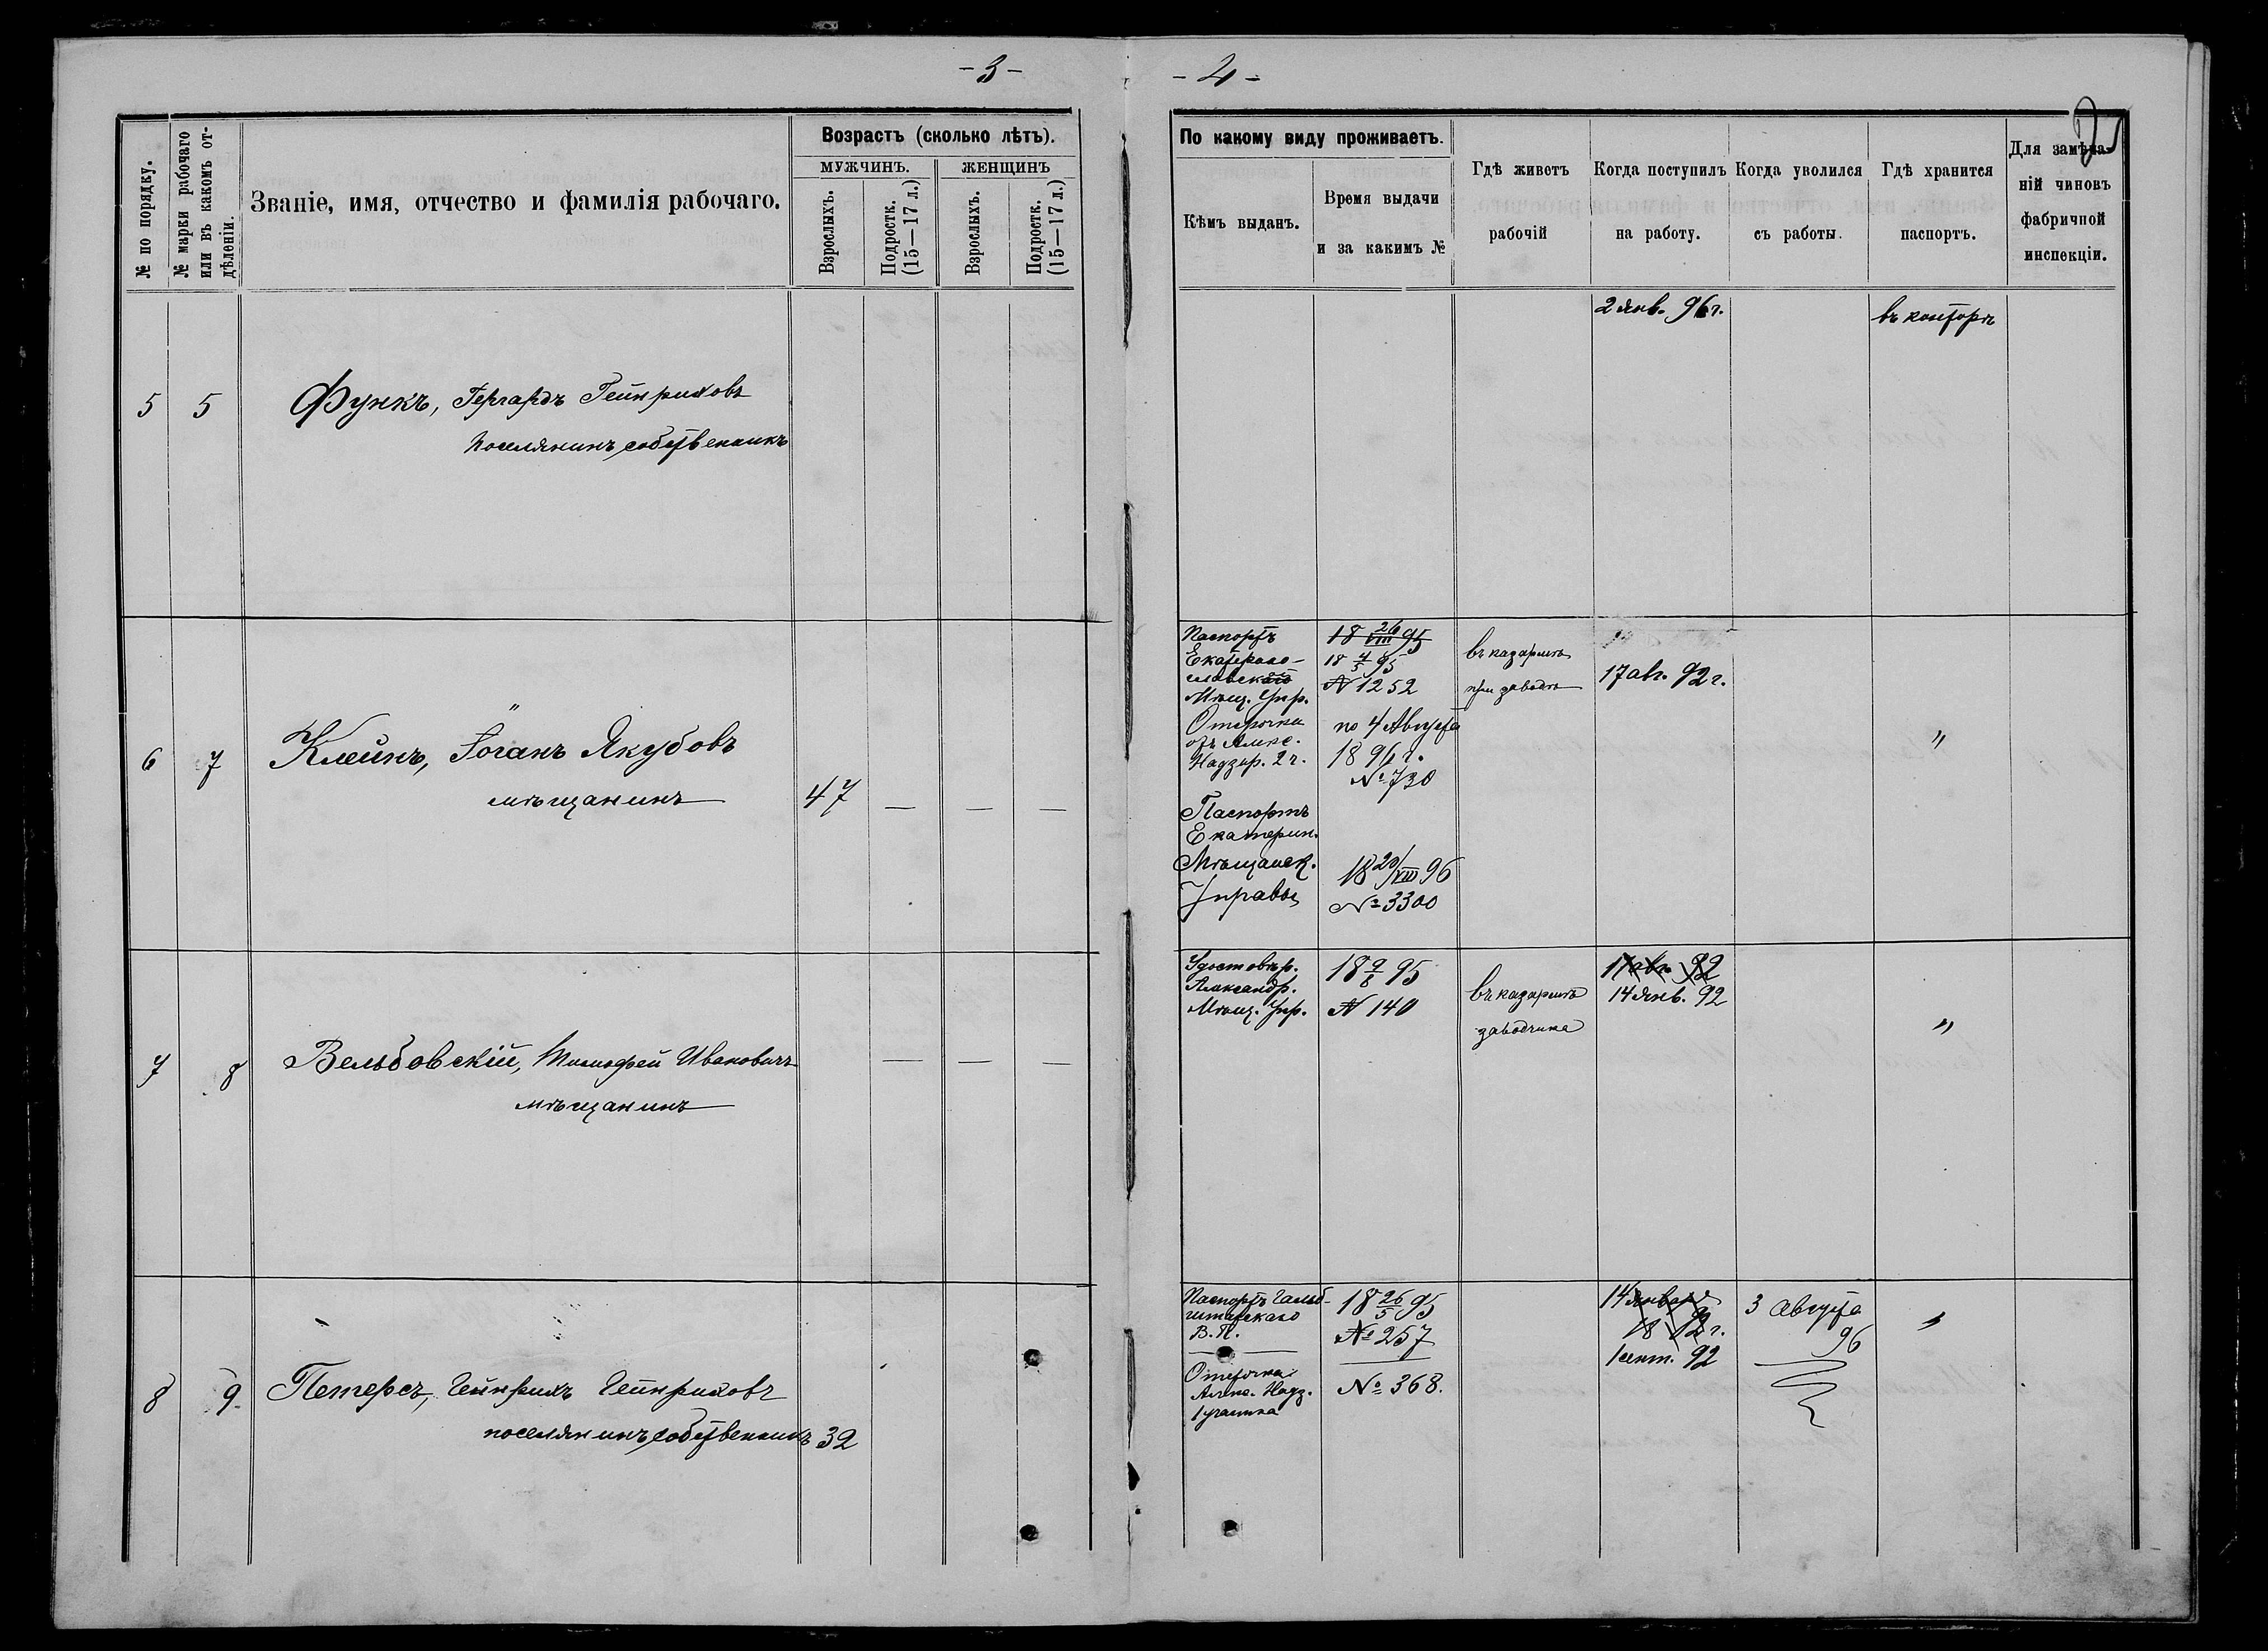 -3-
№ по порядку.
№ марки рабочаго
или въ какомъ от-
дѣленіи.
Званіе, имя, отчество и фамилія рабочаго.
Возрастъ (сколько лѣтъ).
МУЖЧИНЪ.
ЖЕНЩИНЪ
Взрослыхъ.
Подростк.
(15—17 л.)
Взрослыхъ.
Подростк.
(15—17 л.)
5 5 Функъ, Гергардъ Гейнриховъ
Поселянинъ собственникъ
6 7 Клейнъ, Іоганъ Якубовъ
мѣщанинъ 47 — — —
7 8 Вельбовскій, Тимофей Ивановичъ — — —
мѣщанинъ
8 9. Петерсъ, Гейнрихъ Гейнриховъ
поселянинъ собственникъ 32
-4-
По какому виду проживаетъ.
Кѣмъ выданъ.
Время выдачи
и за какимъ №
Гдѣ живетъ
рабочій
Когда поступилъ
на работу.
Когда уволился
съ работы.
Гдѣ хранится
паспортъ.
Для замѣча-
ній чиновъ
фабричной
инспекціи.
2 Янв. 96 г.
въ конторѣ
Паспортъ
Екатерино-
славскаго
Мѣщ. Упр.
Отсрочка
отъ Алекс.
Надзир. 2 ч.
Паспортъ
Екатерин.
Мѣщанск.
Управы
18 26/VIII 95
18 4/5 95
№ 1252
по 4 Августа
1896 г.
№ 730
18 20/VIII 96
№ 3300
въ казармѣ
при заводѣ
17 авг. 92 г.
"
Удостовѣр.
Александр.
Мѣщ. Упр.
18 9/8 95
№ 140
въ казармѣ
заводчика
17 авг. 92
14 Янв. 92
"
Паспортъ Гальб-
штатскаго
В. П.
18 26/5 95
№ 257
Отсрочка
Алекс. Надз.
1 участка
№ 368.
14 Января
18 92 г.
1 сент. 92
3 Августа
96
"